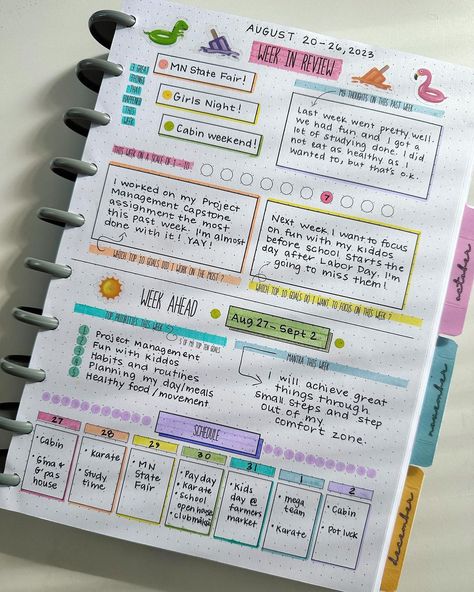 AUGUST 20-26, 2023
WEEK IN REVIEW
3 GREAT
THINGS
THAT
HAPPENED
THIS
WEEK
MN State Fair!
Girls Night!
Cabin weekend!
MY THOUGHTS ON THIS PAST WEEK
Last week went pretty well.
We had fun and I got a
lot of studying done. I did
not eat as healthy as I
wanted to, but that's o.k.
THIS WEEK ON A SCALE OF 1-10
7
I worked on my Project
Management Capstone
assignment the most
this past week. I'm almost
done with it! YAY!
WHICH TOP 10 GOALS DID I WORK ON THE MOST?
Next week I want to focus
on fun with my kiddos
before school starts the
day after Labor Day. I'm
going to miss them!
WHICH TOP 10 GOALS DO I WANT TO FOCUS ON THIS WEEK?
WEEK AHEAD
Aug 27-Sept 2
TOP PRIORITIES THIS WEEK
5 OF MY TOP TEN GOALS
Project Management
Fun with kiddos
Habits and routines
Planning my day/meals
Healthy food/movement
MANTRA THIS WEEK
I will achieve great
things through
small steps and step
out of my
comfort zone.
SCHEDULE
27
• Cabin
• Gma &
G'pas
house
28
• Karate
• Study
time
29
• MN
State
Fair
30
• Payday
• Karate
• school
open house
31
• Kids
day @
farmers
market
1
• mega
team
• Karate
2
• Cabin
• Potluck
october
november
december